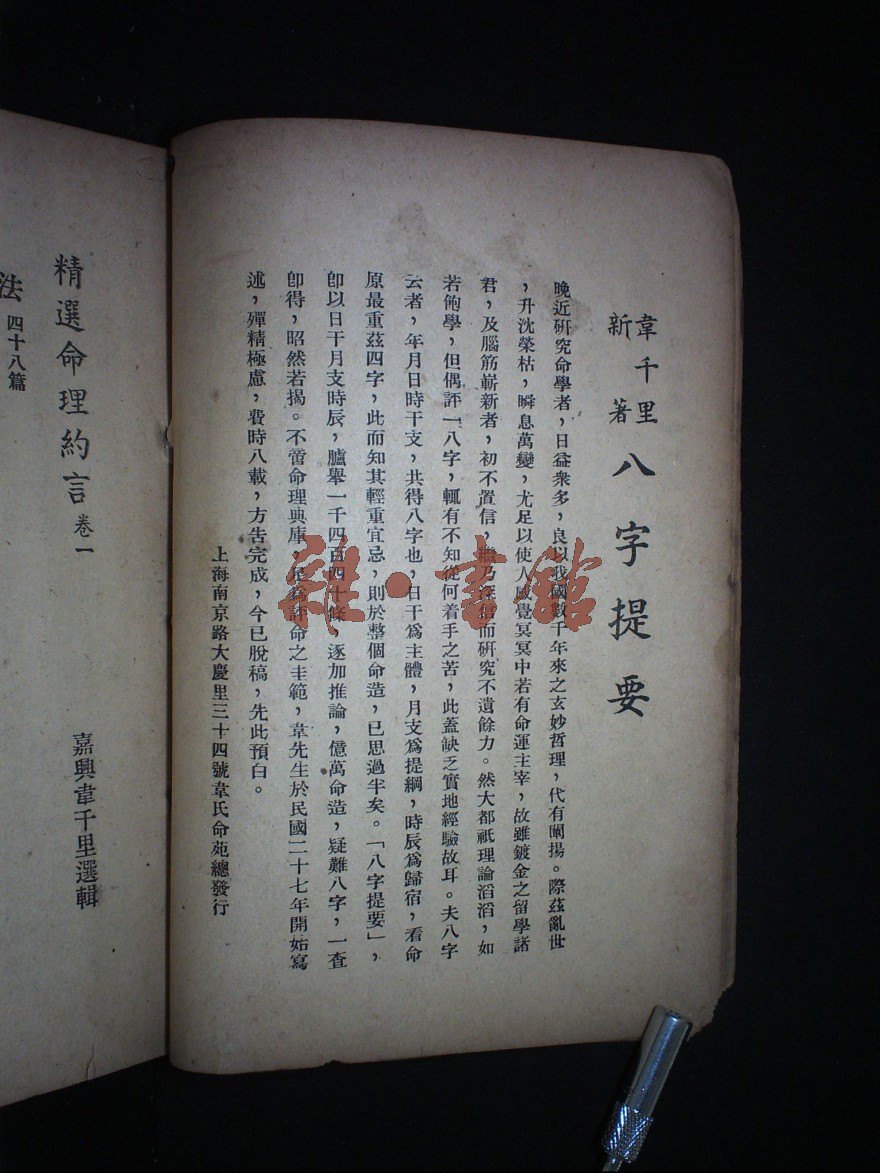 韋千里
新著
八字提要
晚近研究命學者，日益衆多，良以我國數千年來之玄妙哲理，代有闡揚。際茲亂世
，升沈榮枯，瞬息萬變，尤足以使人感覺冥冥中若有命運主宰，故雖鍍金之留學諸
君，及腦筋嶄新者，初不置信，繼乃深信而研究不遺餘力。然大都祇理論滔滔，如
若飽學，但偶評一八字，輒有不知從何着手之苦，此蓋缺乏實地經驗故耳。夫八字
云者，年月日時干支，共得八字也，日干爲主體，月支爲提綱，時辰爲歸宿，看命
原最重茲四字，此而知其輕重宜忌，則於整個命造，已思過半矣。「八字提要」，
卽以日干月支時辰，臚舉一千四百四十條，逐加推論，億萬命造，疑難八字，一查
卽得，昭然若揭。不啻命理典庫，是爲評命之圭範，韋先生於民國二十七年開始寫
述，殫精極慮，費時八載，方告完成，今已脫稿，先此預白。
上海南京路大慶里三十四號韋氏命苑總發行
精選命理約言 卷一
嘉興韋千里選輯
法 四十八篇
雜·書館